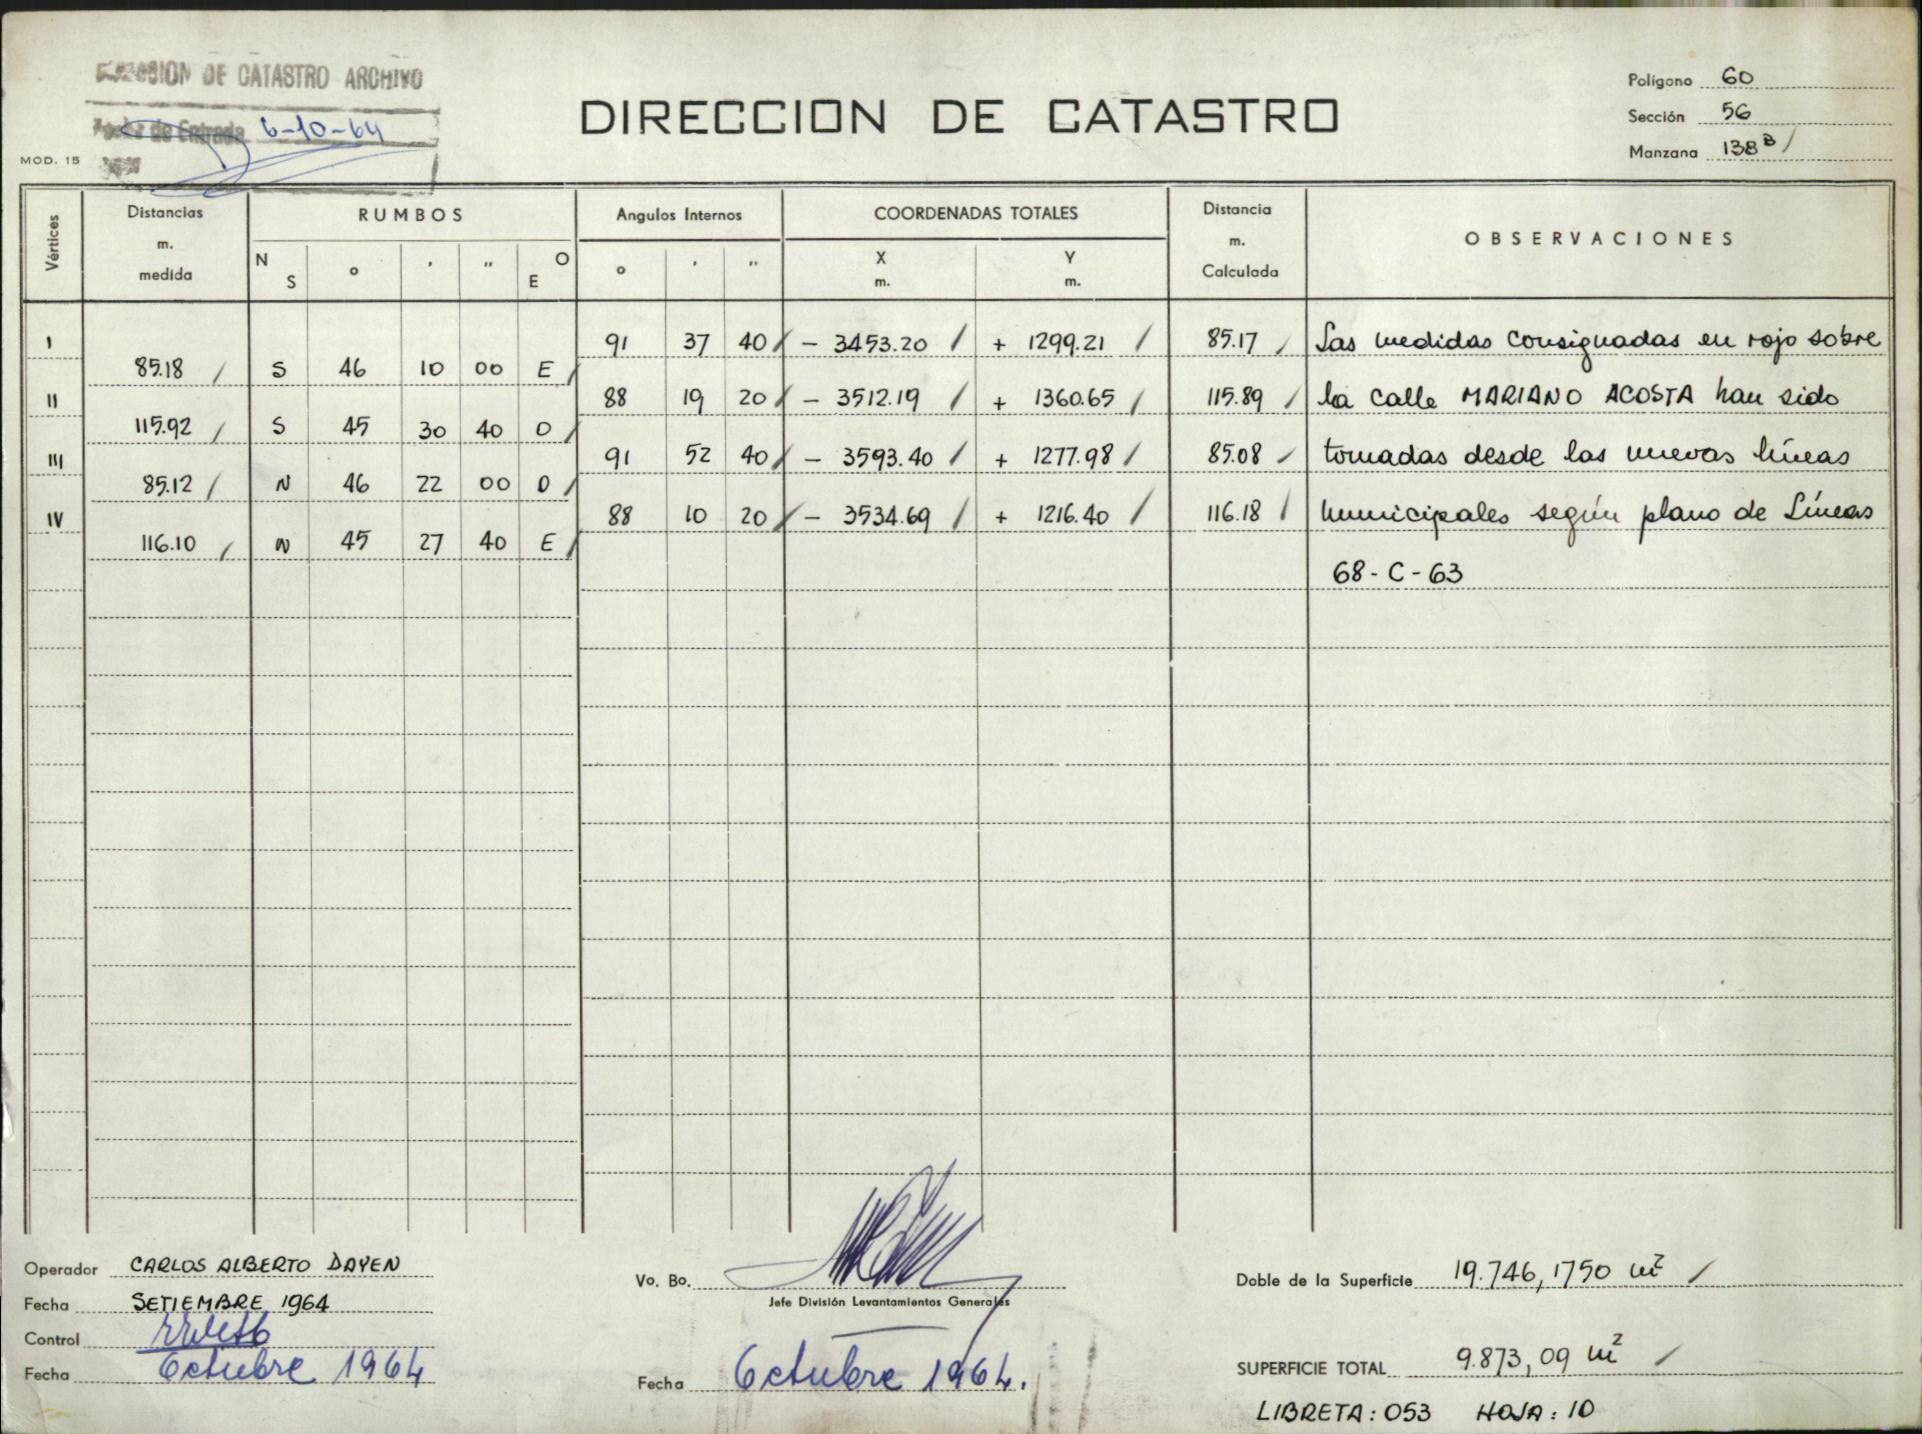 DIRECCION DE CATASTRO ARCHIVO
Fecha de Entrada 6-10-64
MOD. 15
DIRECCION DE CATASTRO
Polígono 60
Sección 56
Manzana 138 B
Vértices Distancias m. medida RUMBOS Angulos Internos COORDENADAS TOTALES Distancia m. Calculada OBSERVACIONES
N S ° ' " O E ° ' " X m. Y m.
I 91 37 40 - 3453.20 + 1299.21 85.17 Las medidas consignadas en rojo sobre
85.18 S 46 10 00 E
II 88 19 20 - 3512.19 + 1360.65 115.89 la calle MARIANO ACOSTA han sido
115.92 S 45 30 40 O
III 91 52 40 - 3593.40 + 1277.98 85.08 tomadas desde las nuevas líneas
85.12 N 46 22 00 O
IV 88 10 20 - 3534.69 + 1216.40 116.18 municipales según plano de Líneas
116.10 N 45 27 40 E
68-C-63
Operador CARLOS ALBERTO DAYEN
Fecha SETIEMBRE 1964
Control
Fecha Octubre 1964
Vo. Bo.
Jefe División Levantamientos Generales
Fecha Octubre 1964.
Doble de la Superficie 19.746,1750 m²
SUPERFICIE TOTAL 9.873,09 m²
LIBRETA: 053 HOJA: 10